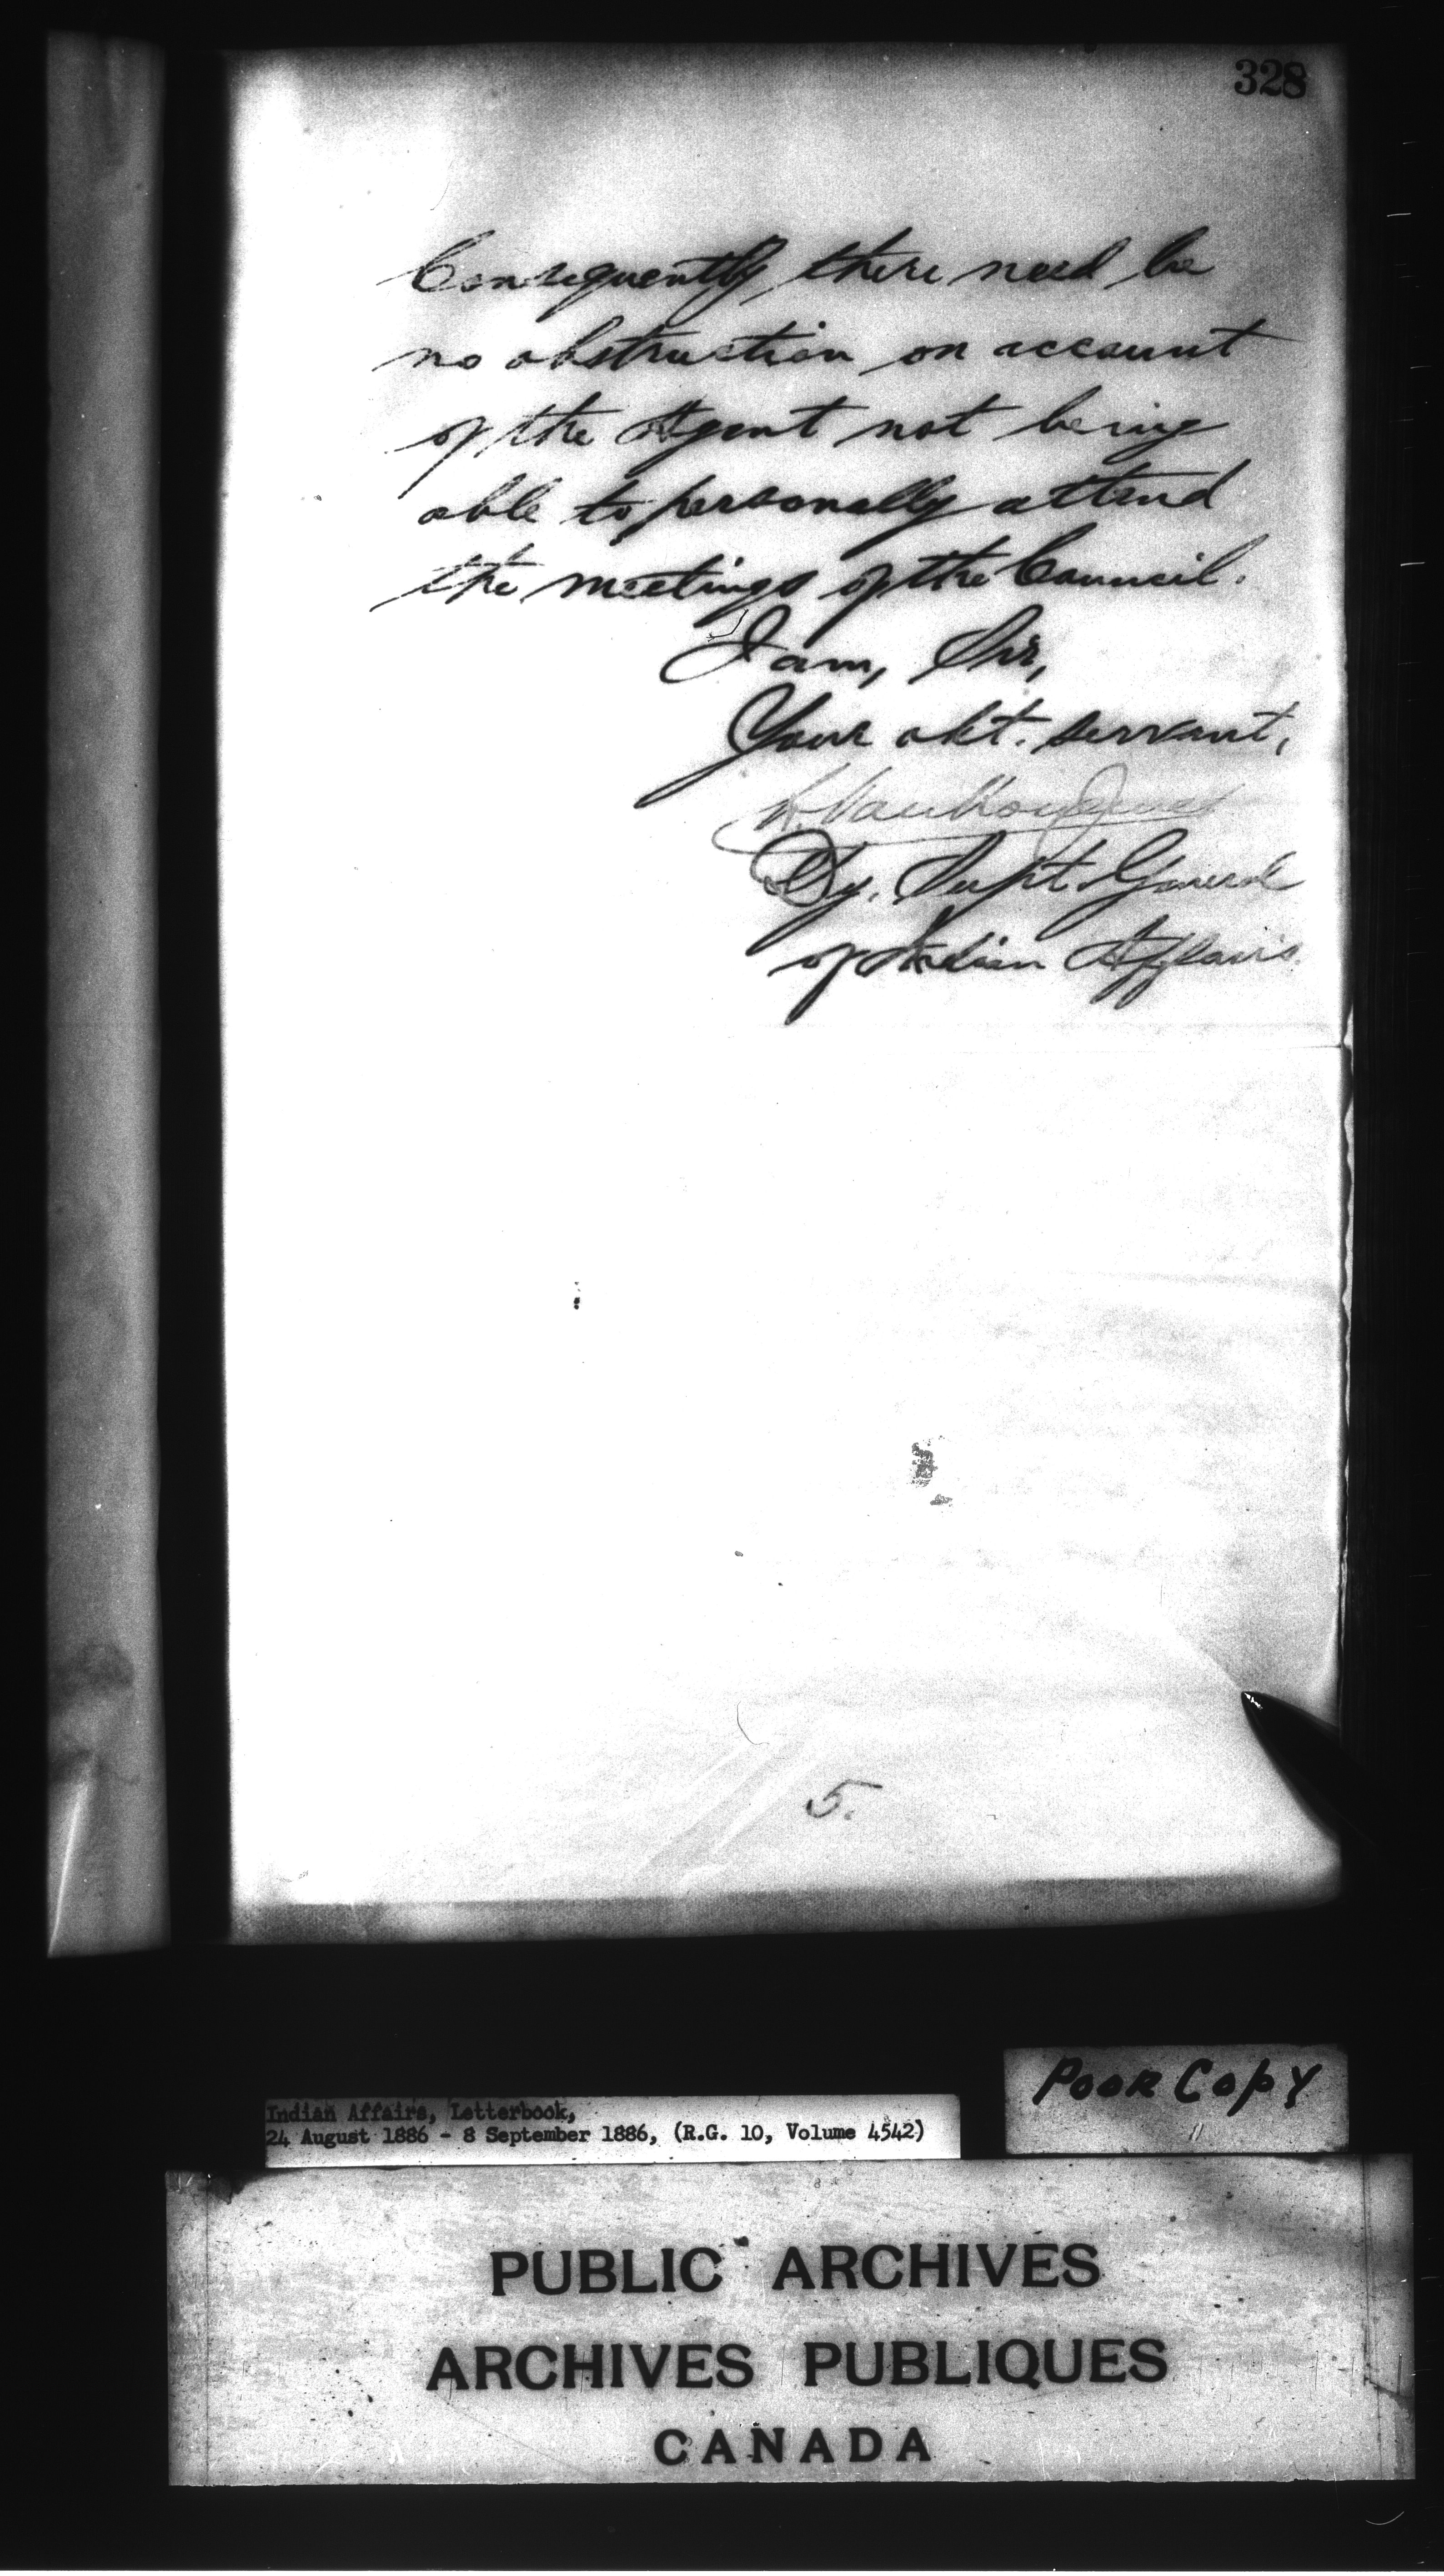 328
Consequently there need be
no obstruction on account
of the Agent not being
able to personally attend
the meetings of the Council.
I am, Sir,
Your obt. servant,
L. VanKoughnet
Dy. Supt. General
of Indian Affairs.
5.
Poor Copy
Indian Affairs, Letterbook,
24 August 1886 - 8 September 1886, (R.G. 10, Volume 4542)
PUBLIC ARCHIVES
ARCHIVES PUBLIQUES
CANADA